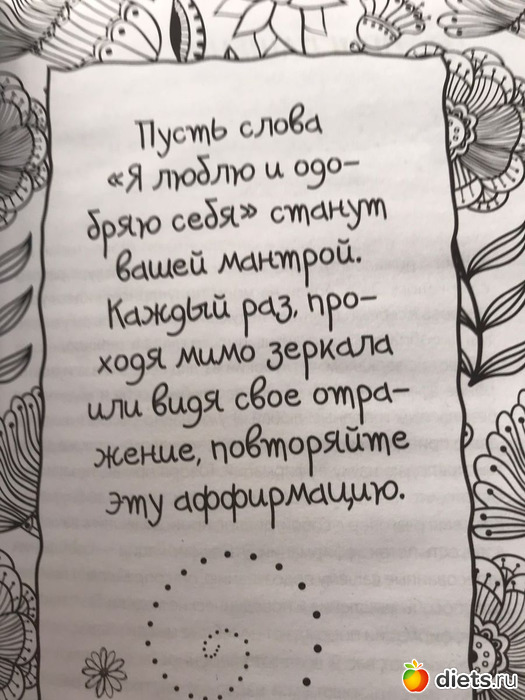 Пусть слова
«Я люблю и одо-
бряю себя» станут
вашей мантрой.
Каждый раз, про-
ходя мимо зеркала
или видя свое отра-
жение, повторяйте
эту аффирмацию.
diets.ru